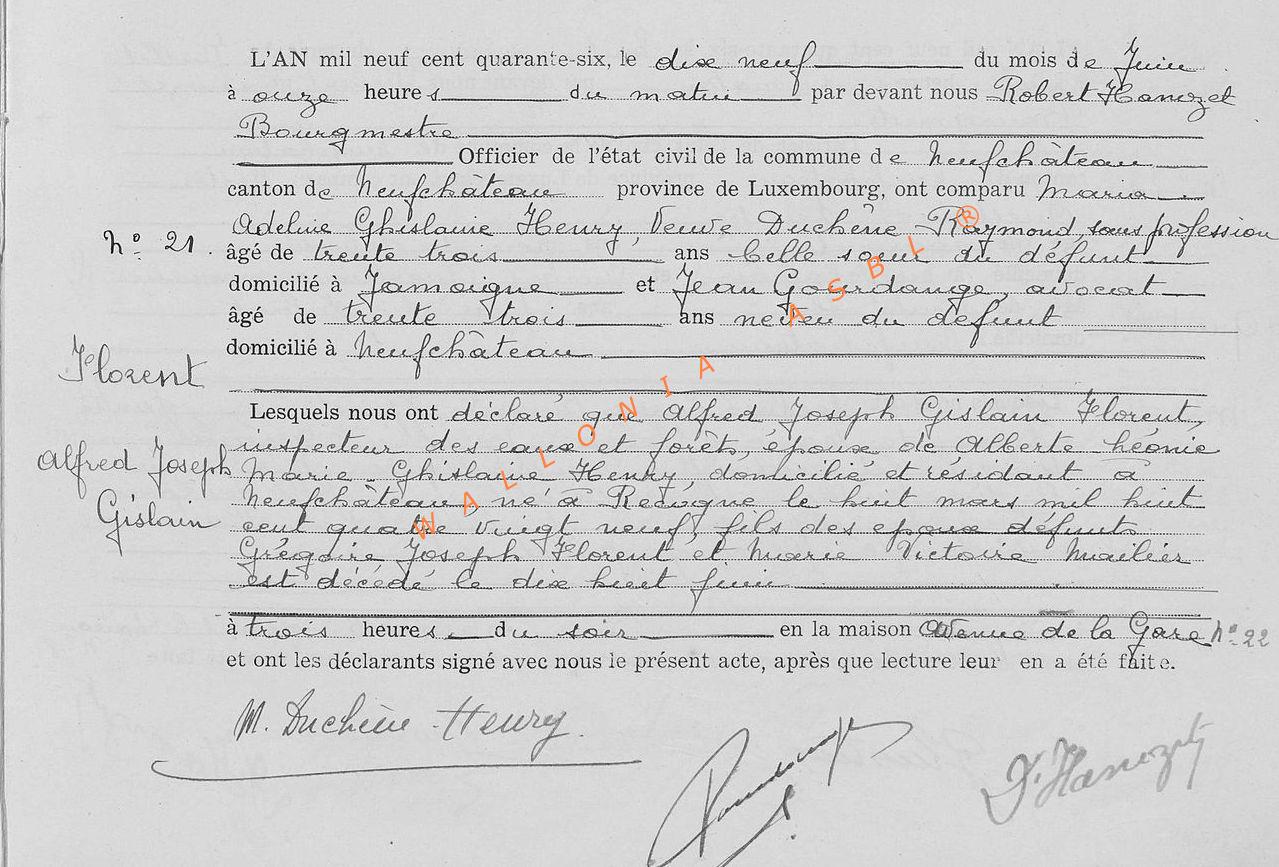 L'AN mil neuf cent quarante-six, le dix neuf du mois de Juin
à onze heures du matin par devant nous Robert Hanozet
Bourgmestre
Officier de l'état civil de la commune de Neufchâteau
canton de Neufchâteau province de Luxembourg, ont comparu Maria
Adeline Ghislaine Henry, Veuve Duchêne Raymond, sans profession
No 21.
âgé de trente trois ans belle soeur du défunt
domicilié à Jamoigne et Jean Gourdange, avocat
âgé de trente trois ans neveu du défunt
domicilié à Neufchâteau
Florent
Alfred Joseph
Gislain
Lesquels nous ont déclaré que Alfred Joseph Gislain Florent,
inspecteur des eaux et forêts, époux de Alberte Léonie
Marie Ghislaine Henry, domicilié et résidant à
Neufchâteau, né à Recogne le huit mars mil huit
cent quatre vingt neuf, fils des époux défunts
Grégoire Joseph Florent et Marie Victoire Mailier
est décédé le dix huit juin
à trois heures du soir en la maison Avenue de la Gare No 22
et ont les déclarants signé avec nous le présent acte, après que lecture leur en a été faite.
M. Duchêne-Henry.
Dr. Hanozet
WALLONIA ASBL ®